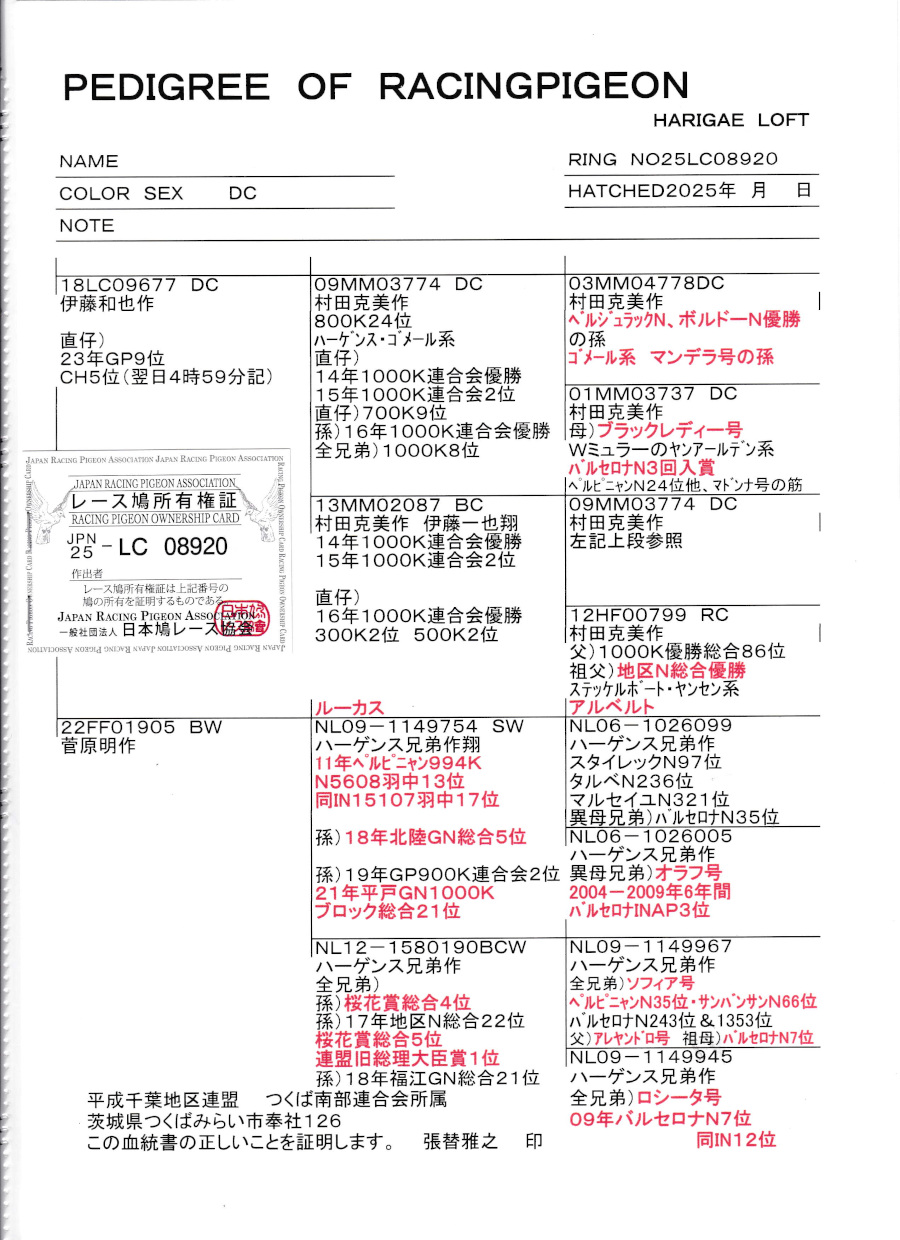 PEDIGREE OF RACINGPIGEON
HARIGAE LOFT
NAME
RING NO25LC08920
COLOR SEX DC
HATCHED2025年 月 日
NOTE
18LC09677 DC
伊藤和也作
直仔)
23年GP9位
CH5位(翌日4時59分記)
JAPAN RACING PIGEON ASSOCIATION JAPAN RACING PIGEON ASSOCIATION
JAPAN RACING PIGEON ASSOCIATION
レース鳩所有権証
RACING PIGEON OWNERSHIP CARD
JPN
25 - LC 08920
作出者
レース鳩所有権証は上記番号の
鳩の所有を証明するものである
JAPAN RACING PIGEON ASSOCIATION
一般社団法人 日本鳩レース協会
22FF01905 BW
菅原明作
09MM03774 DC
村田克美作
800K24位
ハーゲンス・ゴメール系
直仔)
14年1000K連合会優勝
15年1000K連合会2位
直仔)700K9位
孫)16年1000K連合会優勝
全兄弟)1000K8位
13MM02087 BC
村田克美作 伊藤一也翔
14年1000K連合会優勝
15年1000K連合会2位
直仔)
16年1000K連合会優勝
300K2位 500K2位
ルーカス
NL09-1149754 SW
ハーゲンス兄弟作翔
11年ペルピニャン994K
N5608羽中13位
同IN15107羽中17位
孫)18年北陸GN総合5位
孫)19年GP900K連合会2位
21年平戸GN1000K
ブロック総合21位
NL12-1580190BCW
ハーゲンス兄弟作
全兄弟)
孫)桜花賞総合4位
孫)17年地区N総合22位
桜花賞総合5位
連盟旧総理大臣賞1位
孫)18年福江GN総合21位
03MM04778DC
村田克美作
ベルジュラックN、ボルドーN優勝
の孫
ゴメール系 マンデラ号の孫
01MM03737 DC
村田克美作
母)ブラックレディー号
Wミュラーのヤンアールデン系
バルセロナN3回入賞
ペルピニャンN24位他、マドンナ号の筋
09MM03774 DC
村田克美作
左記上段参照
12HF00799 RC
村田克美作
父)1000K優勝総合86位
祖父)地区N総合優勝
ステッケルボート・ヤンセン系
アルベルト
NL06-1026099
ハーゲンス兄弟作
スタイレックN97位
タルベN236位
マルセイユN321位
異母兄弟)バルセロナN35位
NL06-1026005
ハーゲンス兄弟作
異母兄弟)オラフ号
2004-2009年6年間
バルセロナINAP3位
NL09-1149967
ハーゲンス兄弟作
全兄弟)ソフィア号
ペルピニャンN35位・サンバンサンN66位
バルセロナN243位&1353位
父)アレヤンドロ号 祖母)バルセロナN7位
NL09-1149945
ハーゲンス兄弟作
全兄弟)ロシータ号
09年バルセロナN7位
同IN12位
平成千葉地区連盟 つくば南部連合会所属
茨城県つくばみらい市奉社126
この血統書の正しいことを証明します。 張替雅之 印